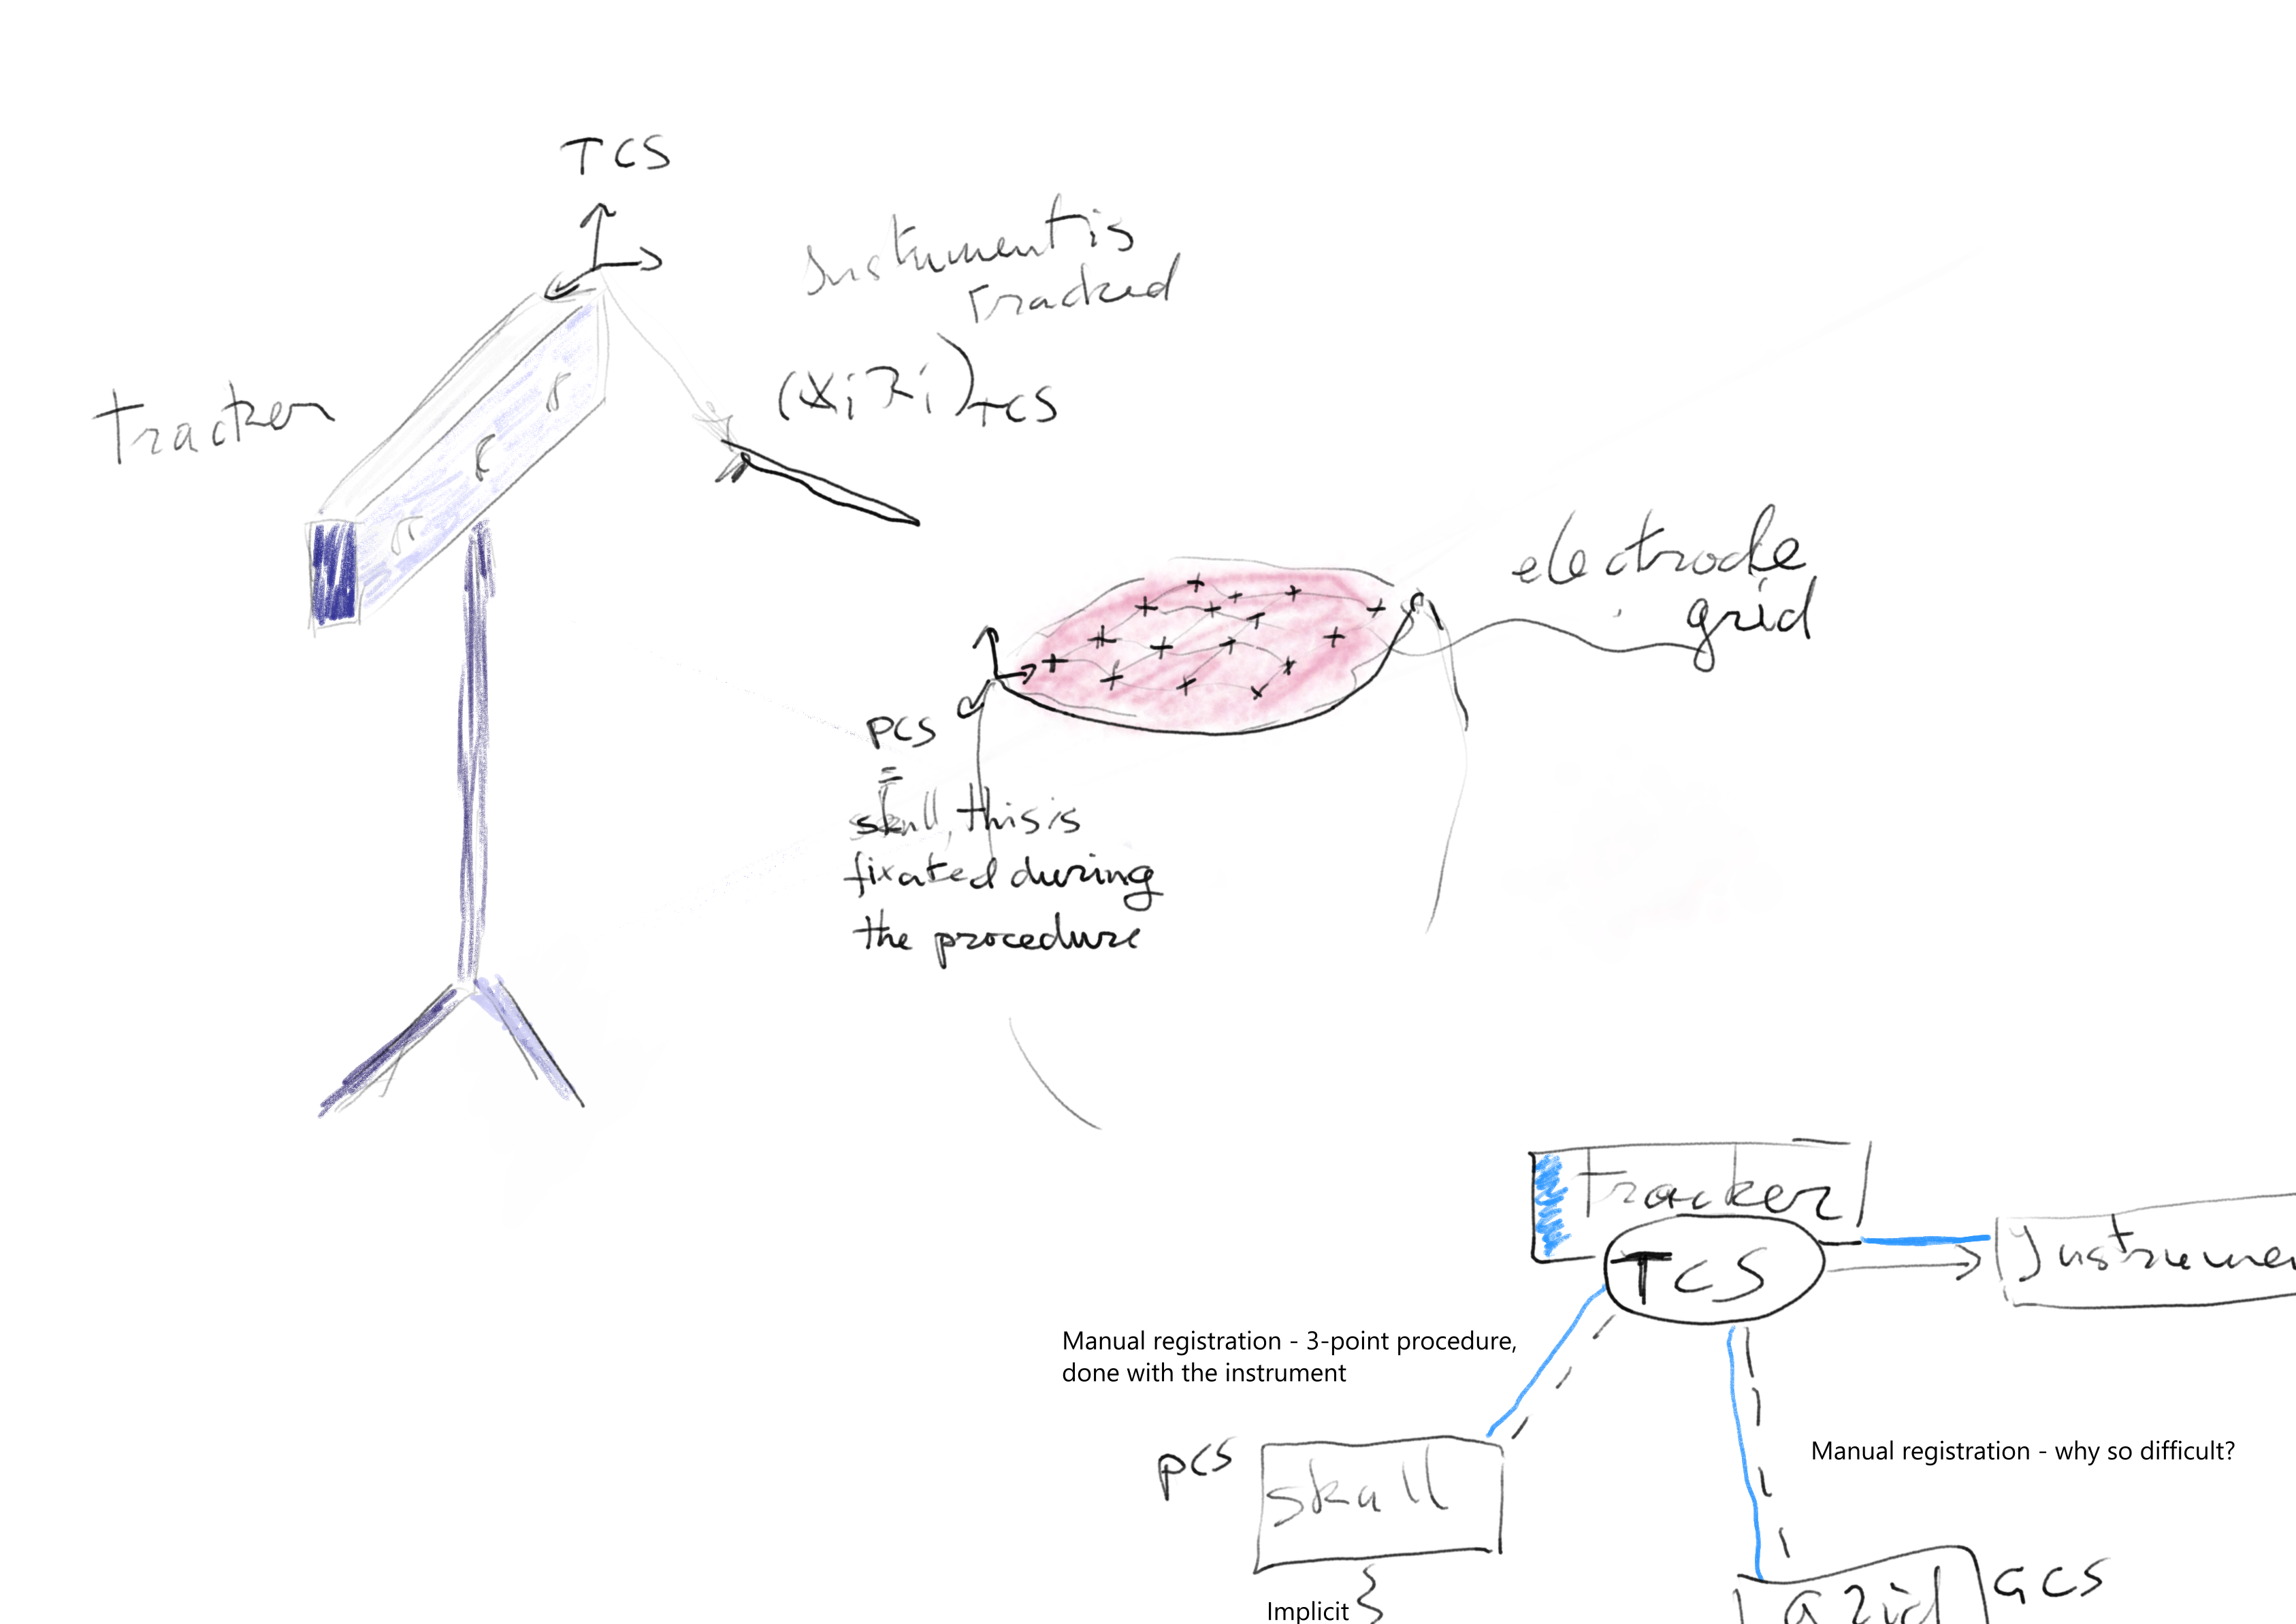 TCS
Instrument is
tracked
(XiRi)TCS
tracker
electrode
grid
PCS
=
skull, this is
fixated during
the procedure
Tracker
TCS
Instrumen
Manual registration - 3-point procedure,
done with the instrument
Manual registration - why so difficult?
PCS
skull
Grid
GCS
Implicit